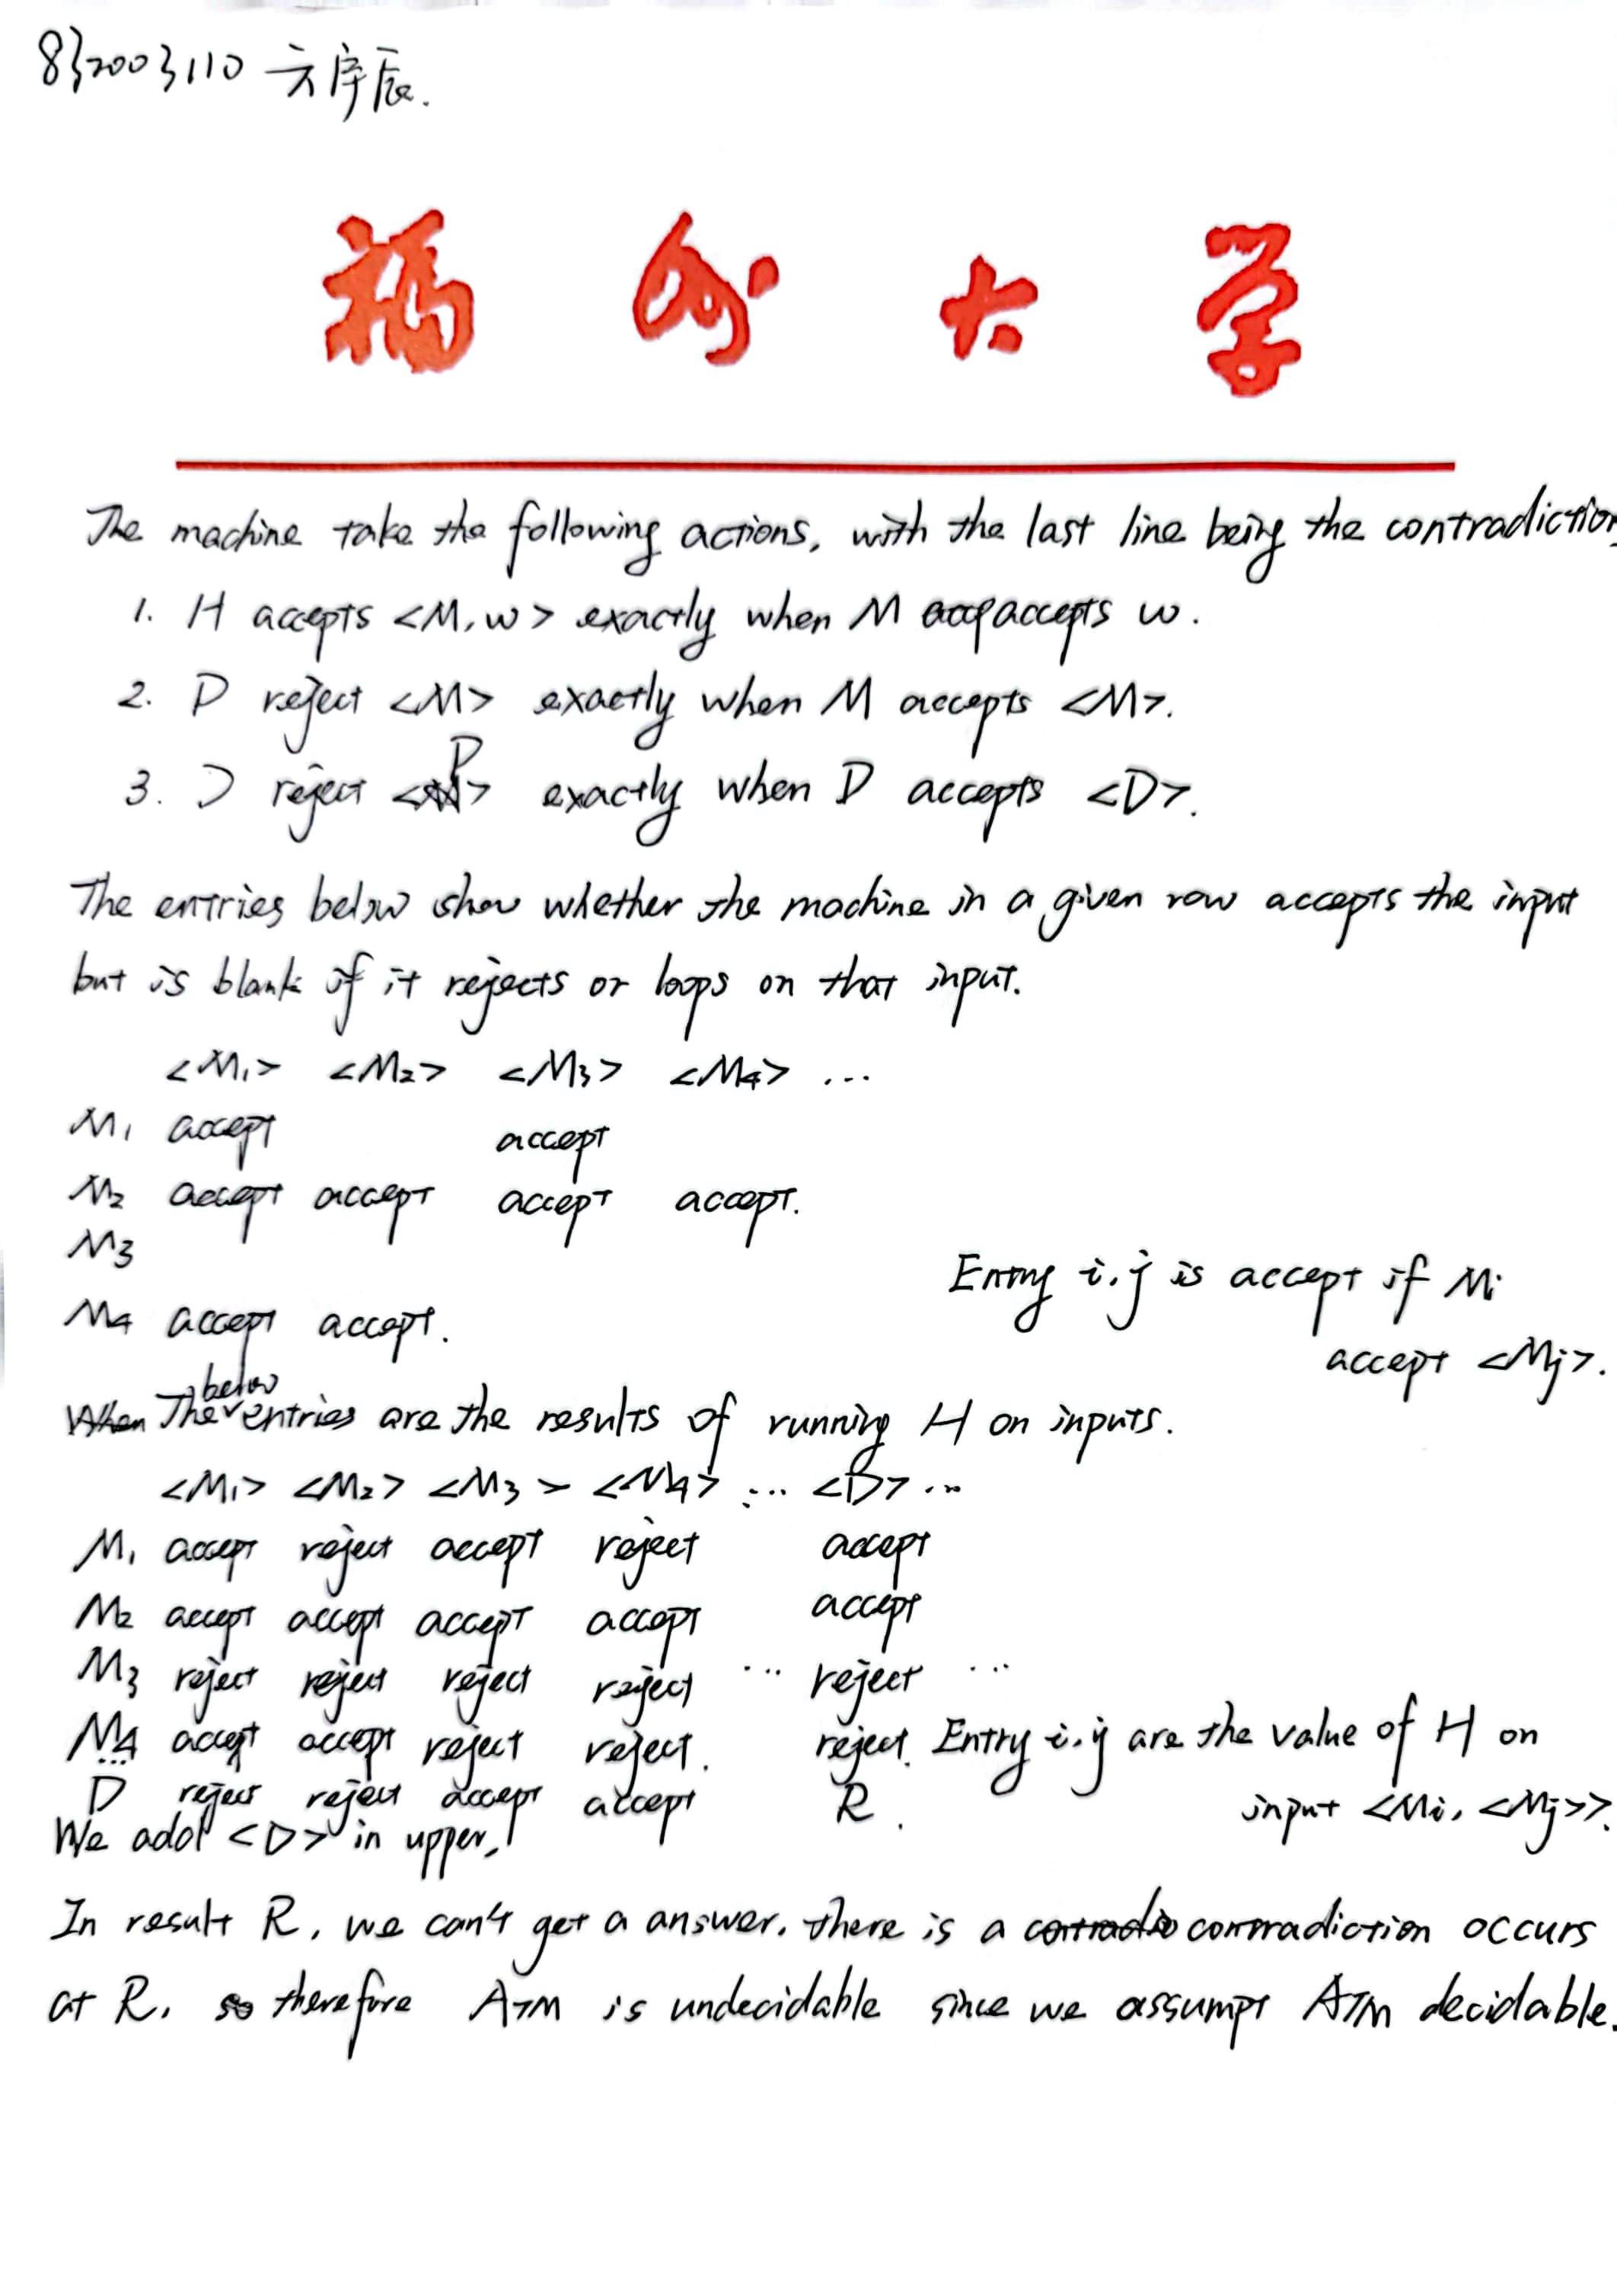 832003110 方序辰.
福州大学
The machine take the following actions, with the last line being the contradiction.
1. H accepts <M, w> exactly when M accepts w.
2. D reject <M> exactly when M accepts <M>.
3. D reject <D> exactly when D accepts <D>.
The entries below show whether the machine in a given row accepts the input
but is blank if it rejects or loops on that input.
<M1> <M2> <M3> <M4> ...
M1 accept accept
M2 accept accept accept accept.
M3
Entry i,j is accept if Mi
M4 accept accept.
accept <Mj>.
The below entries are the results of running H on inputs.
<M1> <M2> <M3> <M4> ... <D> ...
M1 accept reject accept reject accept
M2 accept accept accept accept accept
M3 reject reject reject reject ... reject ...
M4 accept accept reject reject. reject. Entry i,j are the value of H on
...
D reject reject accept accept R. input <Mi, <Mj>>.
We add <D> in upper,
In result R, we can't get a answer. there is a contradiction occurs
at R, therefore ATM is undecidable since we assumpt ATM decidable.